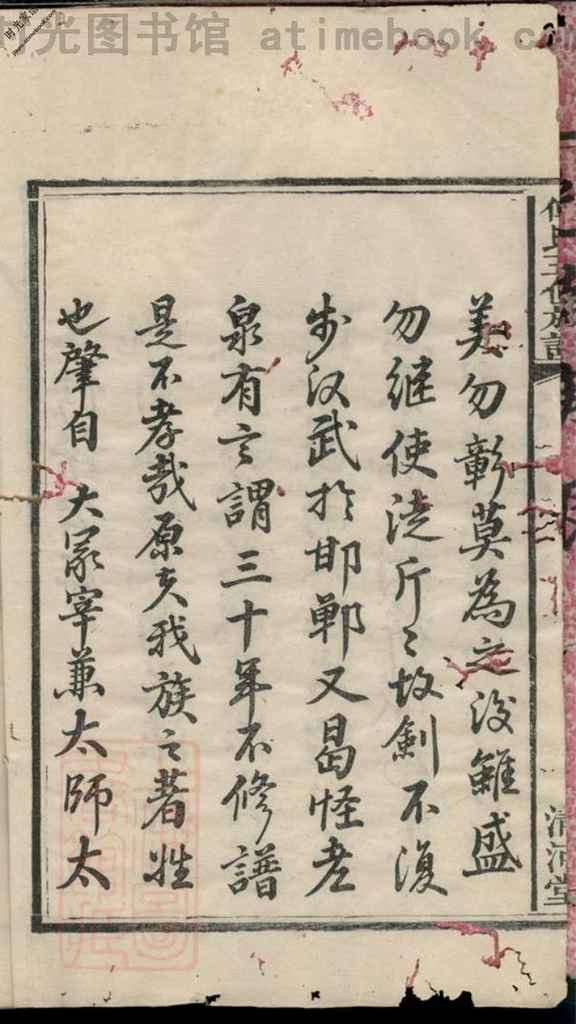 时光图书馆 atimebook.com
美勿彰莫為之後雖盛
勿继使浇斤〻故劍不復
步汉武扵邯鄲又曷怪老
泉有言謂三十年不修譜
是不孝哉原夫我族之著姓
也肇自 大冢宰兼太師太
清河堂